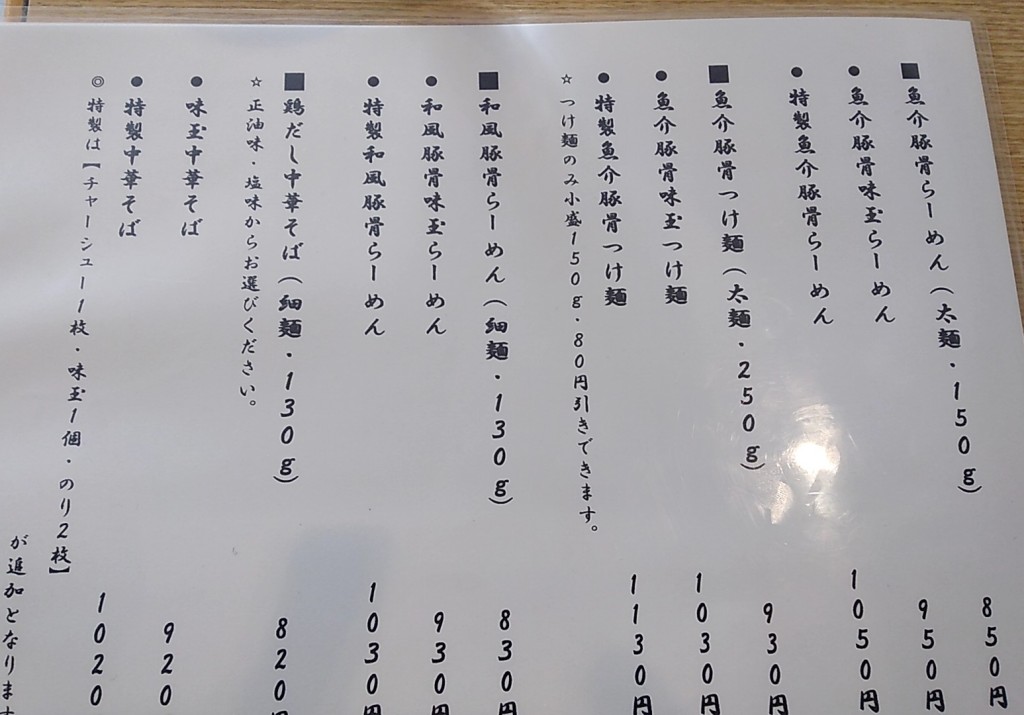 ■魚介豚骨らーめん（太麺・150g） 850円
●魚介豚骨味玉らーめん 950円
●特製魚介豚骨らーめん 1050円
■魚介豚骨つけ麺（太麺・250g） 930円
●魚介豚骨味玉つけ麺 1030円
●特製魚介豚骨つけ麺 1130円
☆つけ麺のみ小盛150g・80円引きできます。
■和風豚骨らーめん（細麺・130g） 830円
●和風豚骨味玉らーめん 930円
●特製和風豚骨らーめん 1030円
■鶏だし中華そば（細麺・130g） 820円
☆正油味・塩味からお選びください。
●味玉中華そば 920
●特製中華そば 1020
◎特製は【チャーシュー1枚・味玉1個・のり2枚】
が追加となります